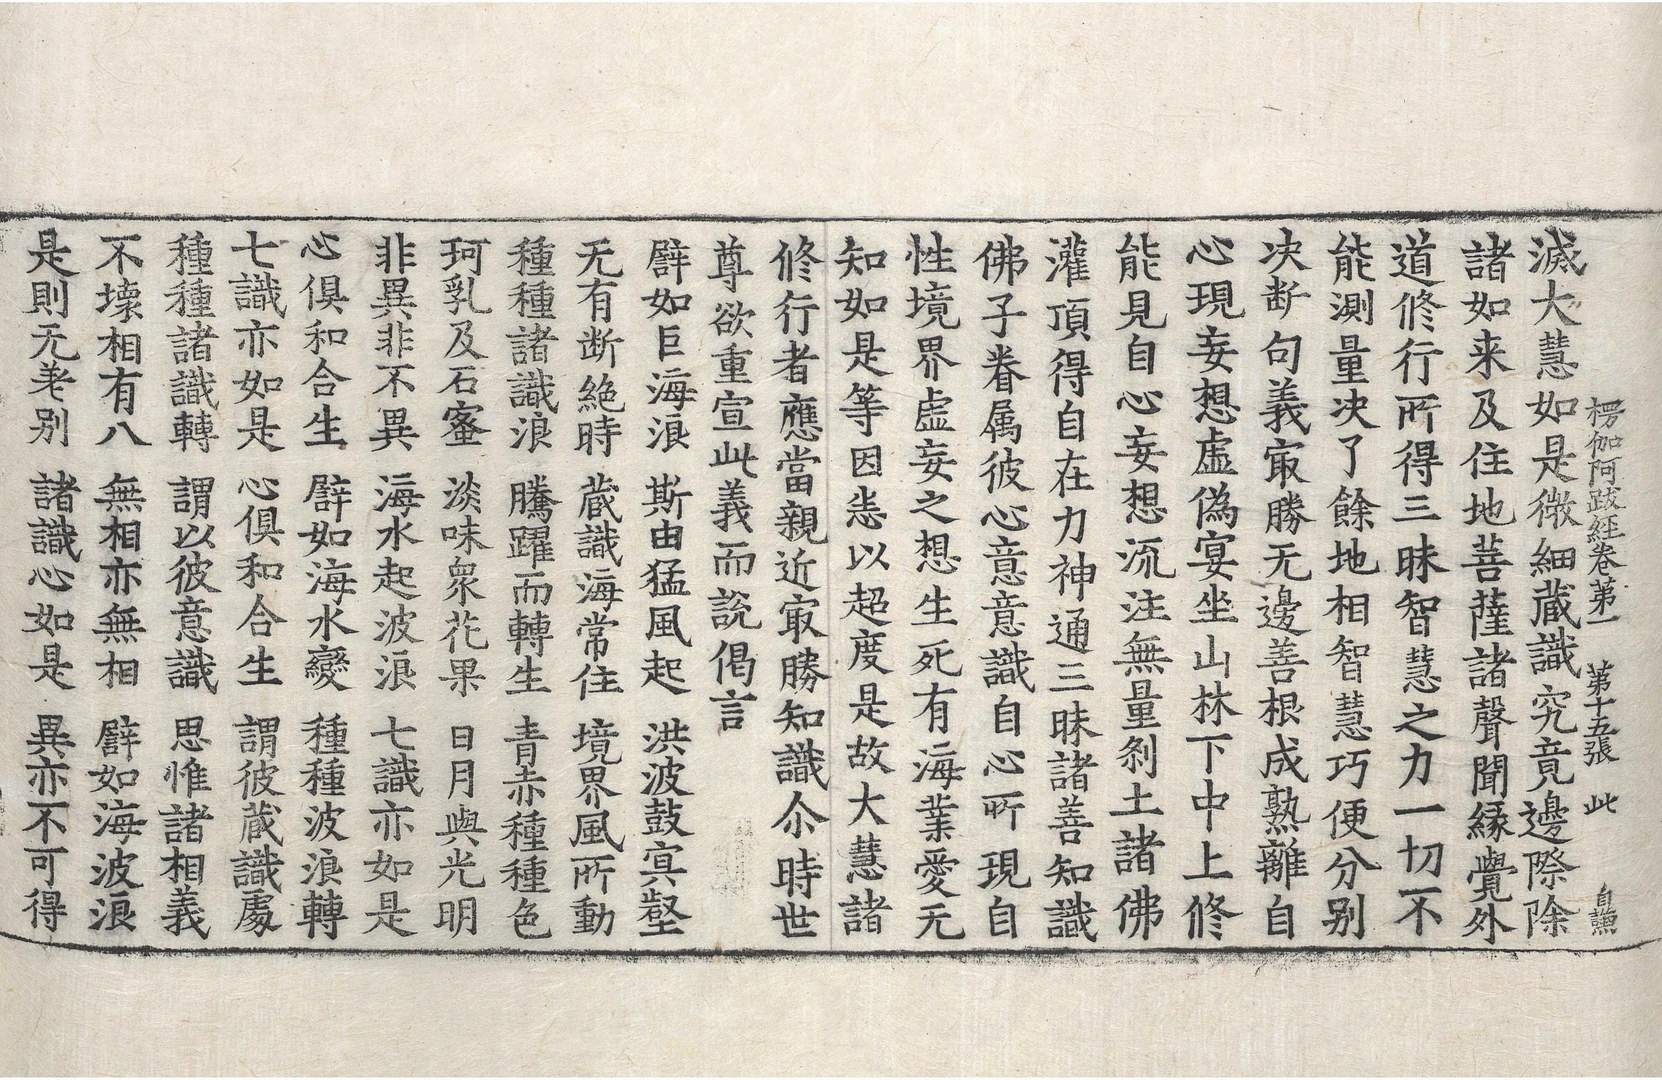 楞伽阿跋経卷第一 第十五張 此 自謙
滅大慧如是微細蔵識究竟邊際除
諸如来及住地菩薩諸聲聞緣覺外
道修行所得三昧智慧之力一切不
能測量决了餘地相智慧巧便分别
决断句義㝡勝无邊善根成熟離自
心現妄想虛偽宴坐山林下中上修
能見自心妄想流注無量刹土諸佛
灌頂得自在力神通三昧諸善知識
佛子眷属彼心意意識自心所現自
性境界虛妄之想生死有海業愛无
知如是等因悉以超度是故大慧諸
修行者應當親近㝡勝知識尒時世
尊欲重宣此義而說偈言
譬如巨海浪 斯由猛風起 洪波鼓㝠壑
无有断絶時 蔵識海常住 境界風所動
種種諸識浪 騰躍而轉生 青赤種種色
珂乳及石蜜 淡味衆花果 日月與光明
非異非不異 海水起波浪 七識亦如是
心俱和合生 譬如海水變 種種波浪轉
七識亦如是 心俱和合生 謂彼蔵識處
種種諸識轉 謂以彼意識 思惟諸相義
不壊相有八 無相亦無相 譬如海波浪
是則无差别 諸識心如是 異亦不可得